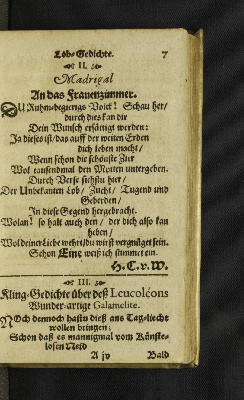 Lob-Gedichte. 7
II.
Madrigal
An das Frauenzimmer.
DU Ruhm-begierigs Volck! Schau her/
durch dies kan dir
Dein Wunsch ersättigt werden:
Ja dieses ist/das auff der weiten Erden
dich leben macht/
Wenn schon die schönste Zier
Wol tausendmal den Motten untergeben.
Durch Verse siehstu hier/
Der Unbekanten Lob/ Zucht/ Tugend und
Geberden/
In diese Gegend hergebracht.
Wolan! so halt auch den/ der dich also kan
heben/
Wol deiner Liebe wehrt/du wirst vergnüget sein.
Schon Eine weiß ich stimmet ein.
H. C. v. W.
III.
Kling-Gedichte über deß Leucoléons
Wunder-artige Galamelite.
NOch dennoch hastu dieß ans Tag-liecht
wollen bringen;
Schon daß es mannigmal vom Künste-
losen Neid
A jv Bald